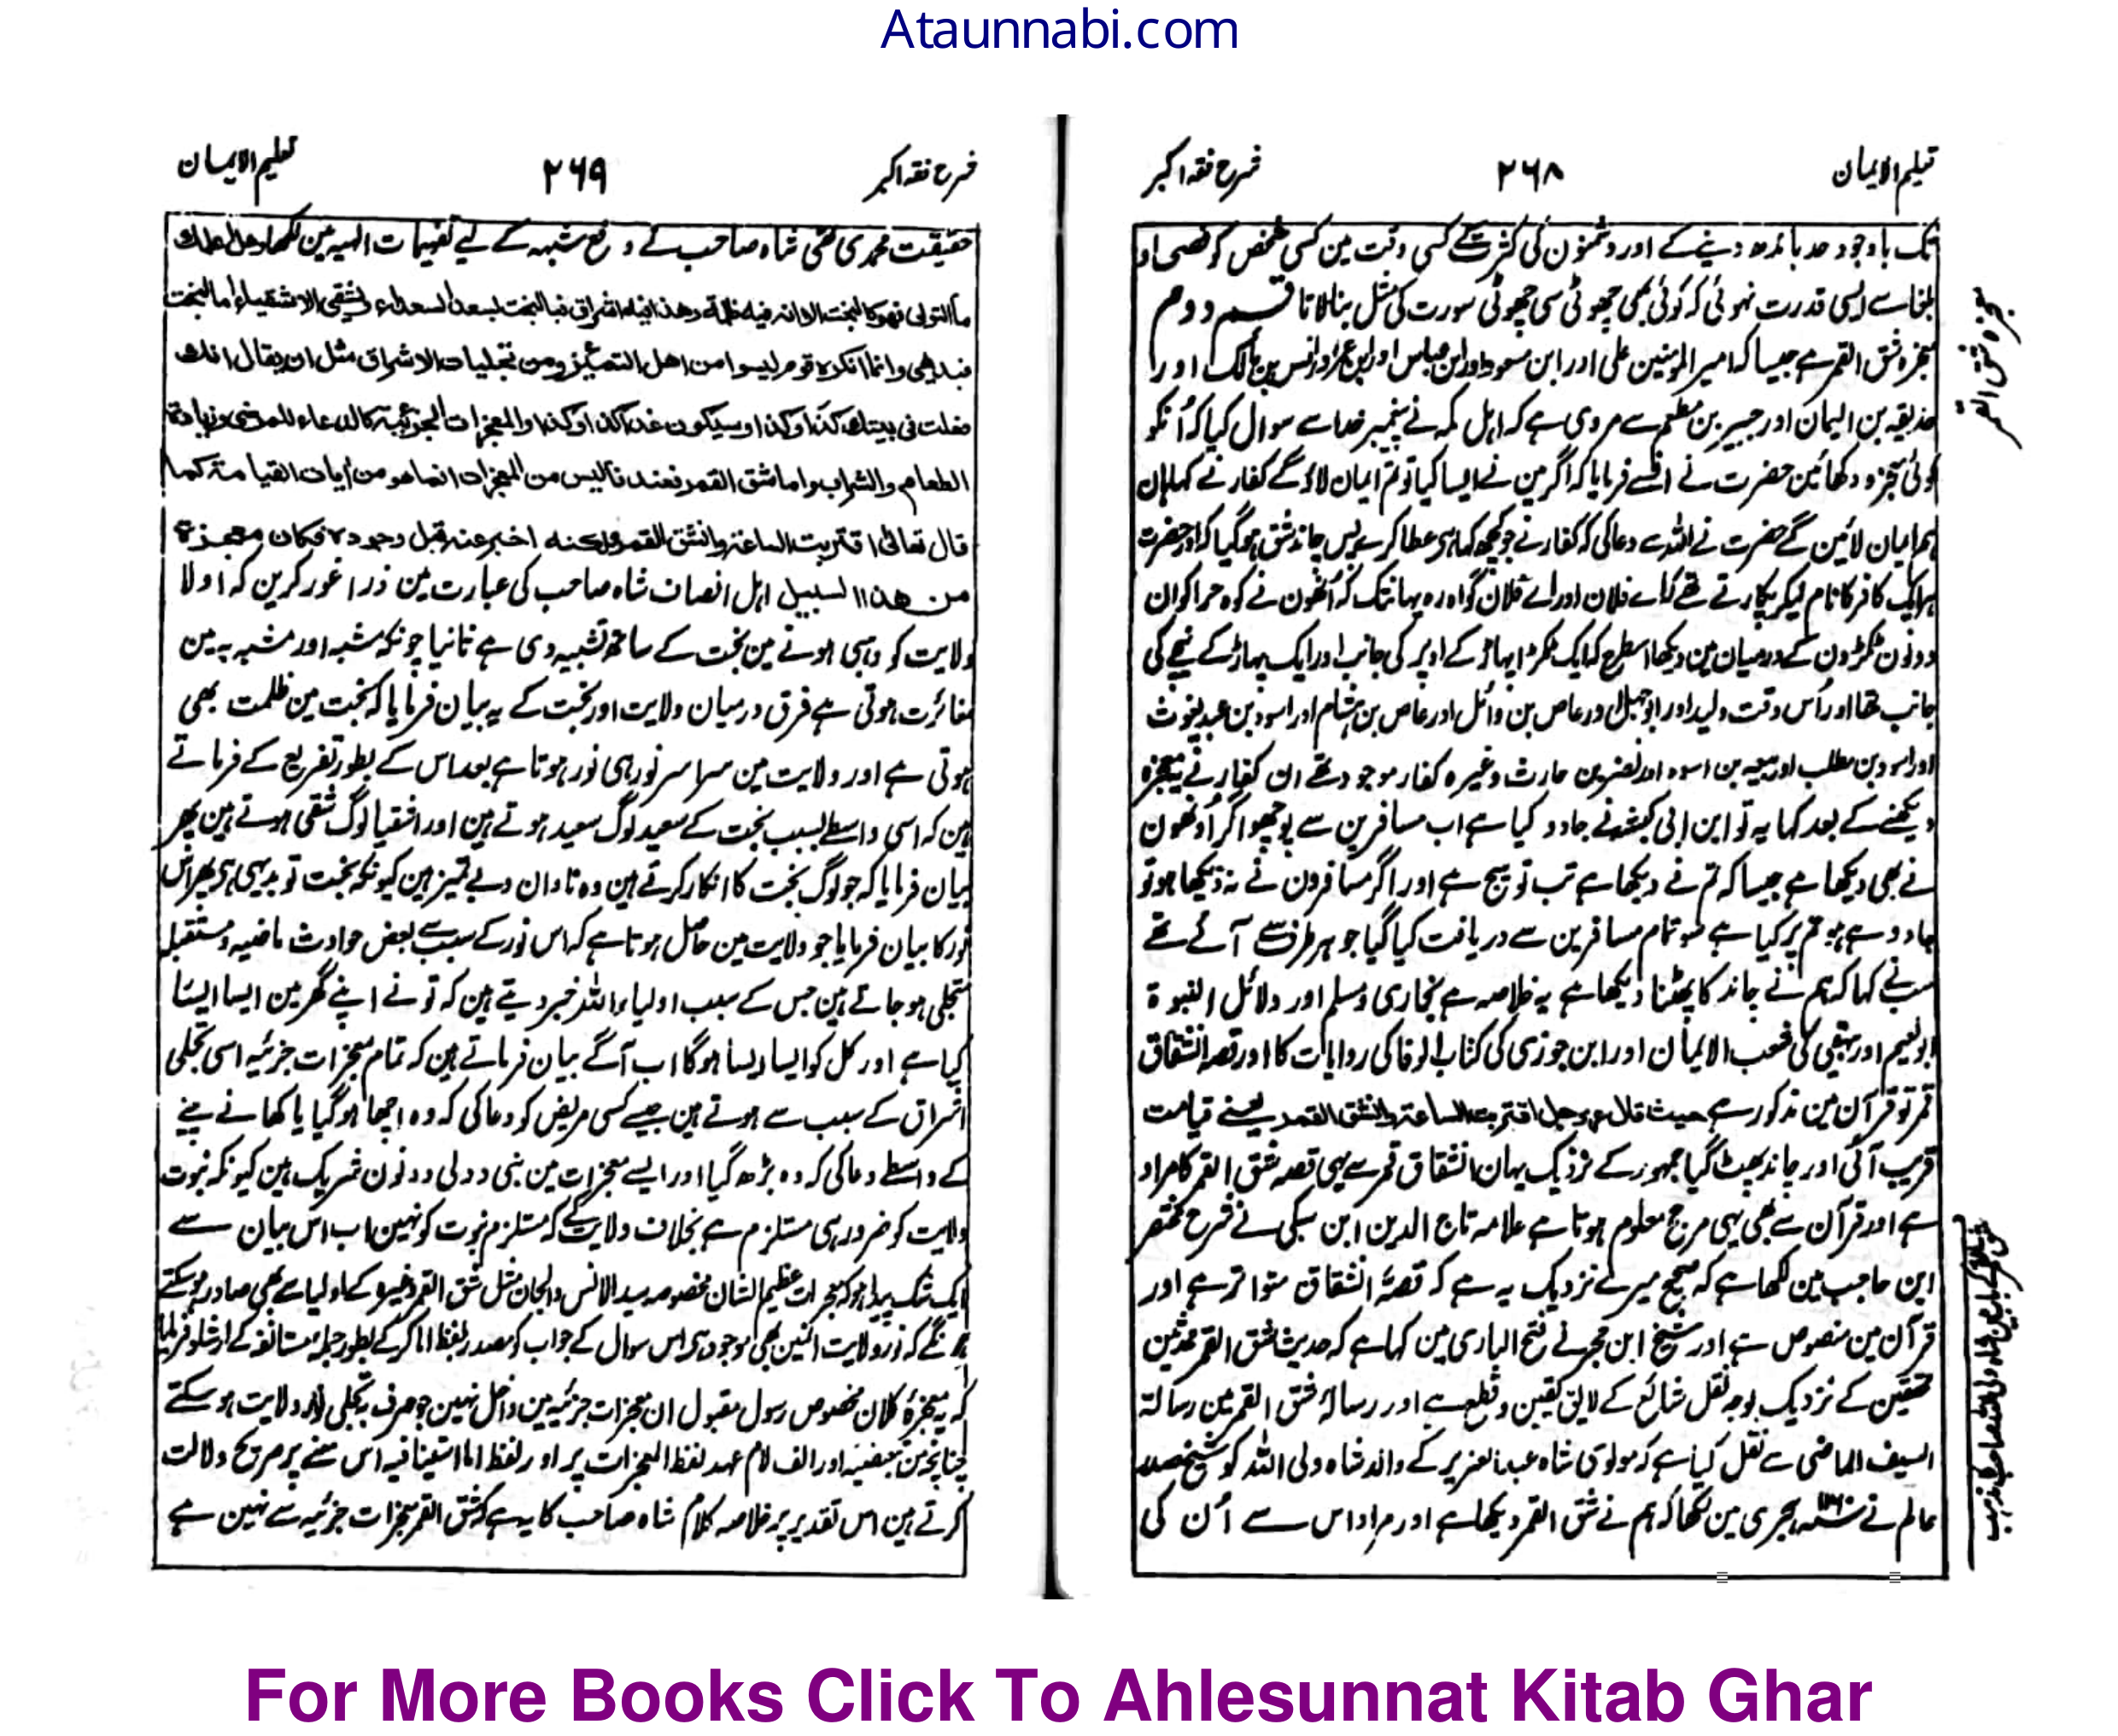 Ataunnabi.com
تعلیم الایمان ۲۶۸ شرح فقہ اکبر
تک باوجود حد باندھ دینے کے اور دشمنون کی کثرت کے کسی وقت مین کسی شخص کو فصحی او
بلغا سے ایسی قدرت نہوئی کہ کوئی بھی چھوٹی سی چھوٹی سورت کی مثل بنا لاتا قسم دوم
معجزہ شق القمر ہے جیسا کہ امیر المومنین علی اور ابن مسعود اور ابن عباس اور ابن عمر اور انس بن مالک اور
حذیفہ بن الیمان اور جبیر بن مطعم سے مروی ہے کہ اہل مکہ نے پیغمبر خدا سے سوال کیا کہ اُنکو
کوئی معجزہ دکھائین حضرت نے اُنسے فرمایا کہ اگر مین نے ایسا کیا تو تم ایمان لاؤ گے کفار نے کہا ہان
ہم ایمان لائین گے حضرت نے اللہ سے دعا کی کہ کفار نے جو کچھ کہا ہی عطا کرے پس چاند شق ہوگیا کہ اور حضرت
ہر ایک کافر کا نام لیکر پکارتے تھے کہ اے فلان اور اے فلان گواہ رہ یہانتک کہ اُنھون نے کوہ حرا کو ان
دونون ٹکڑون کے درمیان مین دیکھا اسطرح کہ ایک ٹکڑا پہاڑ کے اوپر کی جانب اور ایک پہاڑ کے نیچے کی
جانب تھا اور اُس وقت ولید اور ابوجہل اور عاص بن وائل اور عاص بن ہشام اور اسود بن عبد یغوث
اور اسود بن مطلب اور بن اسود اور نضر بن حارث وغیرہ کفار موجود تھے ان کفار نے یہ معجزہ
دیکھنے کے بعد کہا یہ تو ابن ابی کبشہ نے جادو کیا ہے اب مسافرین سے پوچھو اگر اُونھون
نے بھی دیکھا ہے جیسا کہ تم نے دیکھا ہے تب تو سچ ہے اور اگر مسافرون نے نہ دیکھا ہو تو
جادو ہے جو تم پر کیا ہے تمام مسافرین سے دریافت کیا گیا جو ہر طرف سے آئے تھے
سب نے کہا کہ ہم نے چاند کا پھٹنا دیکھا ہے یہ خلاصہ ہے بخاری و مسلم اور دلائل النبوۃ
ابو نعیم اور بیہقی کی شعب الایمان اور ابن جوزی کی کتاب الوفا کی روایات کا اور قصہ انشقاق
قمر تو قرآن مین مذکور ہے حیث قال عز وجل اقتربت الساعۃ وانشق القمر یعنے قیامت
قریب آئی اور چاند پھٹ گیا جمہور کے نزدیک یہان انشقاق قمر سے یہی قصہ شق القمر کا مراد
ہے اور قرآن سے بھی یہی مرجح معلوم ہوتا ہے علامہ تاج الدین ابن سبکی نے شرح مختصر
ابن حاجب مین لکھا ہے کہ صحیح میرے نزدیک یہ ہے کہ قصۂ انشقاق متواتر ہے اور
قرآن مین منصوص ہے اور شیخ ابن حجر نے فتح الباری مین کہا ہے کہ حدیث شق القمر محدثین
محققین کے نزدیک بوجہ نقل شائع کے لایق یقین و قطع ہے اور رسالۂ شق القمر مین رسالۃ
السیف الماضی سے نقل کیا ہے کہ مولوی شاہ عبدالعزیز کے والد شاہ ولی اللہ کو شیخ صدر
عالم نے ہجری مین لکھا کہ ہم نے شق القمر دیکھا ہے اور مراد اس سے اُن کی
معجزہ شق القمر
تعلیم الایمان ۲۶۹ شرح فقہ اکبر
حقیقت محمدی تھی شاہ صاحب نے دفع شبہہ کے لیے تفہیمات الہیہ مین لکھا
ما التولی فھو کالبخت الا انہ فیہ ظلمۃ وھذا فیہ اشراق فبالبخت یسعد السعداء ویشقی الاشقیاء اما البخت
فبدیھی وانما انکرہ قوم لیسوا من اھل التمییز ومن تجلیات الاشراق مثل ان یقال انک
فعلت فی بیتک کذا وکذا وسیکون غدا کذا وکذا والمعجزات الجزئیۃ کالدعاء للمرضی وزیادۃ
الطعام والشراب واما شق القمر فعندنا لیس من المعجزات انما ھو من اٰیات القیامۃ کما
قال تعالیٰ اقتربت الساعۃ وانشق القمر ولکنہ اخبر عنہ قبل وجودہ فکان معجزۃ
من ھذا السبیل اہل انصاف شاہ صاحب کی عبارت مین ذرا غور کرین کہ اولا
ولایت کو وہبی ہونے مین بخت کے ساتھ تشبیہ دی ہے ثانیا چونکہ مشبہ اور مشبہ بہ مین
مغائرت ہوتی ہے فرق درمیان ولایت اور بخت کے یہ بیان فرمایا کہ بخت مین ظلمت بھی
ہوتی ہے اور ولایت مین سراسر نور ہی نور ہوتا ہے بعد اس کے بطور تفریع کے فرماتے
ہین کہ اسی واسطے بسبب بخت کے سعید لوگ سعید ہوتے ہین اور اشقیا لوگ شقی ہوتے ہین پھر
بیان فرمایا کہ جو لوگ بخت کا انکار کرتے ہین وہ نادان و بے تمیز ہین کیونکہ بخت تو بدیہی ہی پھر اُس
نور کا بیان فرمایا جو ولایت مین حاصل ہوتا ہے کہ اس نور کے سبب سے بعض حوادث ماضیہ و مستقبلہ
متجلی ہو جاتے ہین جس کے سبب اولیاء اللہ خبر دیتے ہین کہ تو نے اپنے گھر مین ایسا ایسا
کیا ہے اور کل کو ایسا ویسا ہوگا اب آگے بیان فرماتے ہین کہ تمام معجزات جزئیہ اسی تجلی
اشراق کے سبب سے ہوتے ہین جیسے کسی مریض کو دعا کی کہ وہ اچھا ہوگیا یا کھانے پینے
کے واسطے دعا کی کہ وہ بڑھ گیا اور ایسے معجزات مین نبی و ولی دونون شریک ہین کیونکہ نبوت
ولایت کو ضرور ہی مستلزم ہے بخلاف ولایت کے کہ مستلزم نبوت کو نہین اب اس بیان سے
ایک شک پیدا ہوا کہ معجزات عظیم الشان مخصوصہ سید الانس والجان مثل شق القمر وغیرہ کے اولیا سے بھی صادر ہو سکتے
ہونگے کہ نور ولایت انمین بھی موجود ہی اس سوال کے جواب کو مصدر بلفظ اما کر کے بطور جملہ مستانفہ کے ارشاد فرمایا
کہ یہ معجزۂ کلان مخصوص رسول مقبول ان معجزات جزئیہ مین داخل نہین جو صرف تجلی نور ولایت ہو سکتے
چنانچہ من تبعیضیہ اور الف لام عہد لفظ المعجزات پر اور لفظ اما استینافیہ اس معنے پر صریح دلالت
کرتے ہین اس تقدیر پر خلاصہ کلام شاہ صاحب کا یہ ہے کہ شق القمر معجزات جزئیہ سے نہین ہے
For More Books Click To Ahlesunnat Kitab Ghar